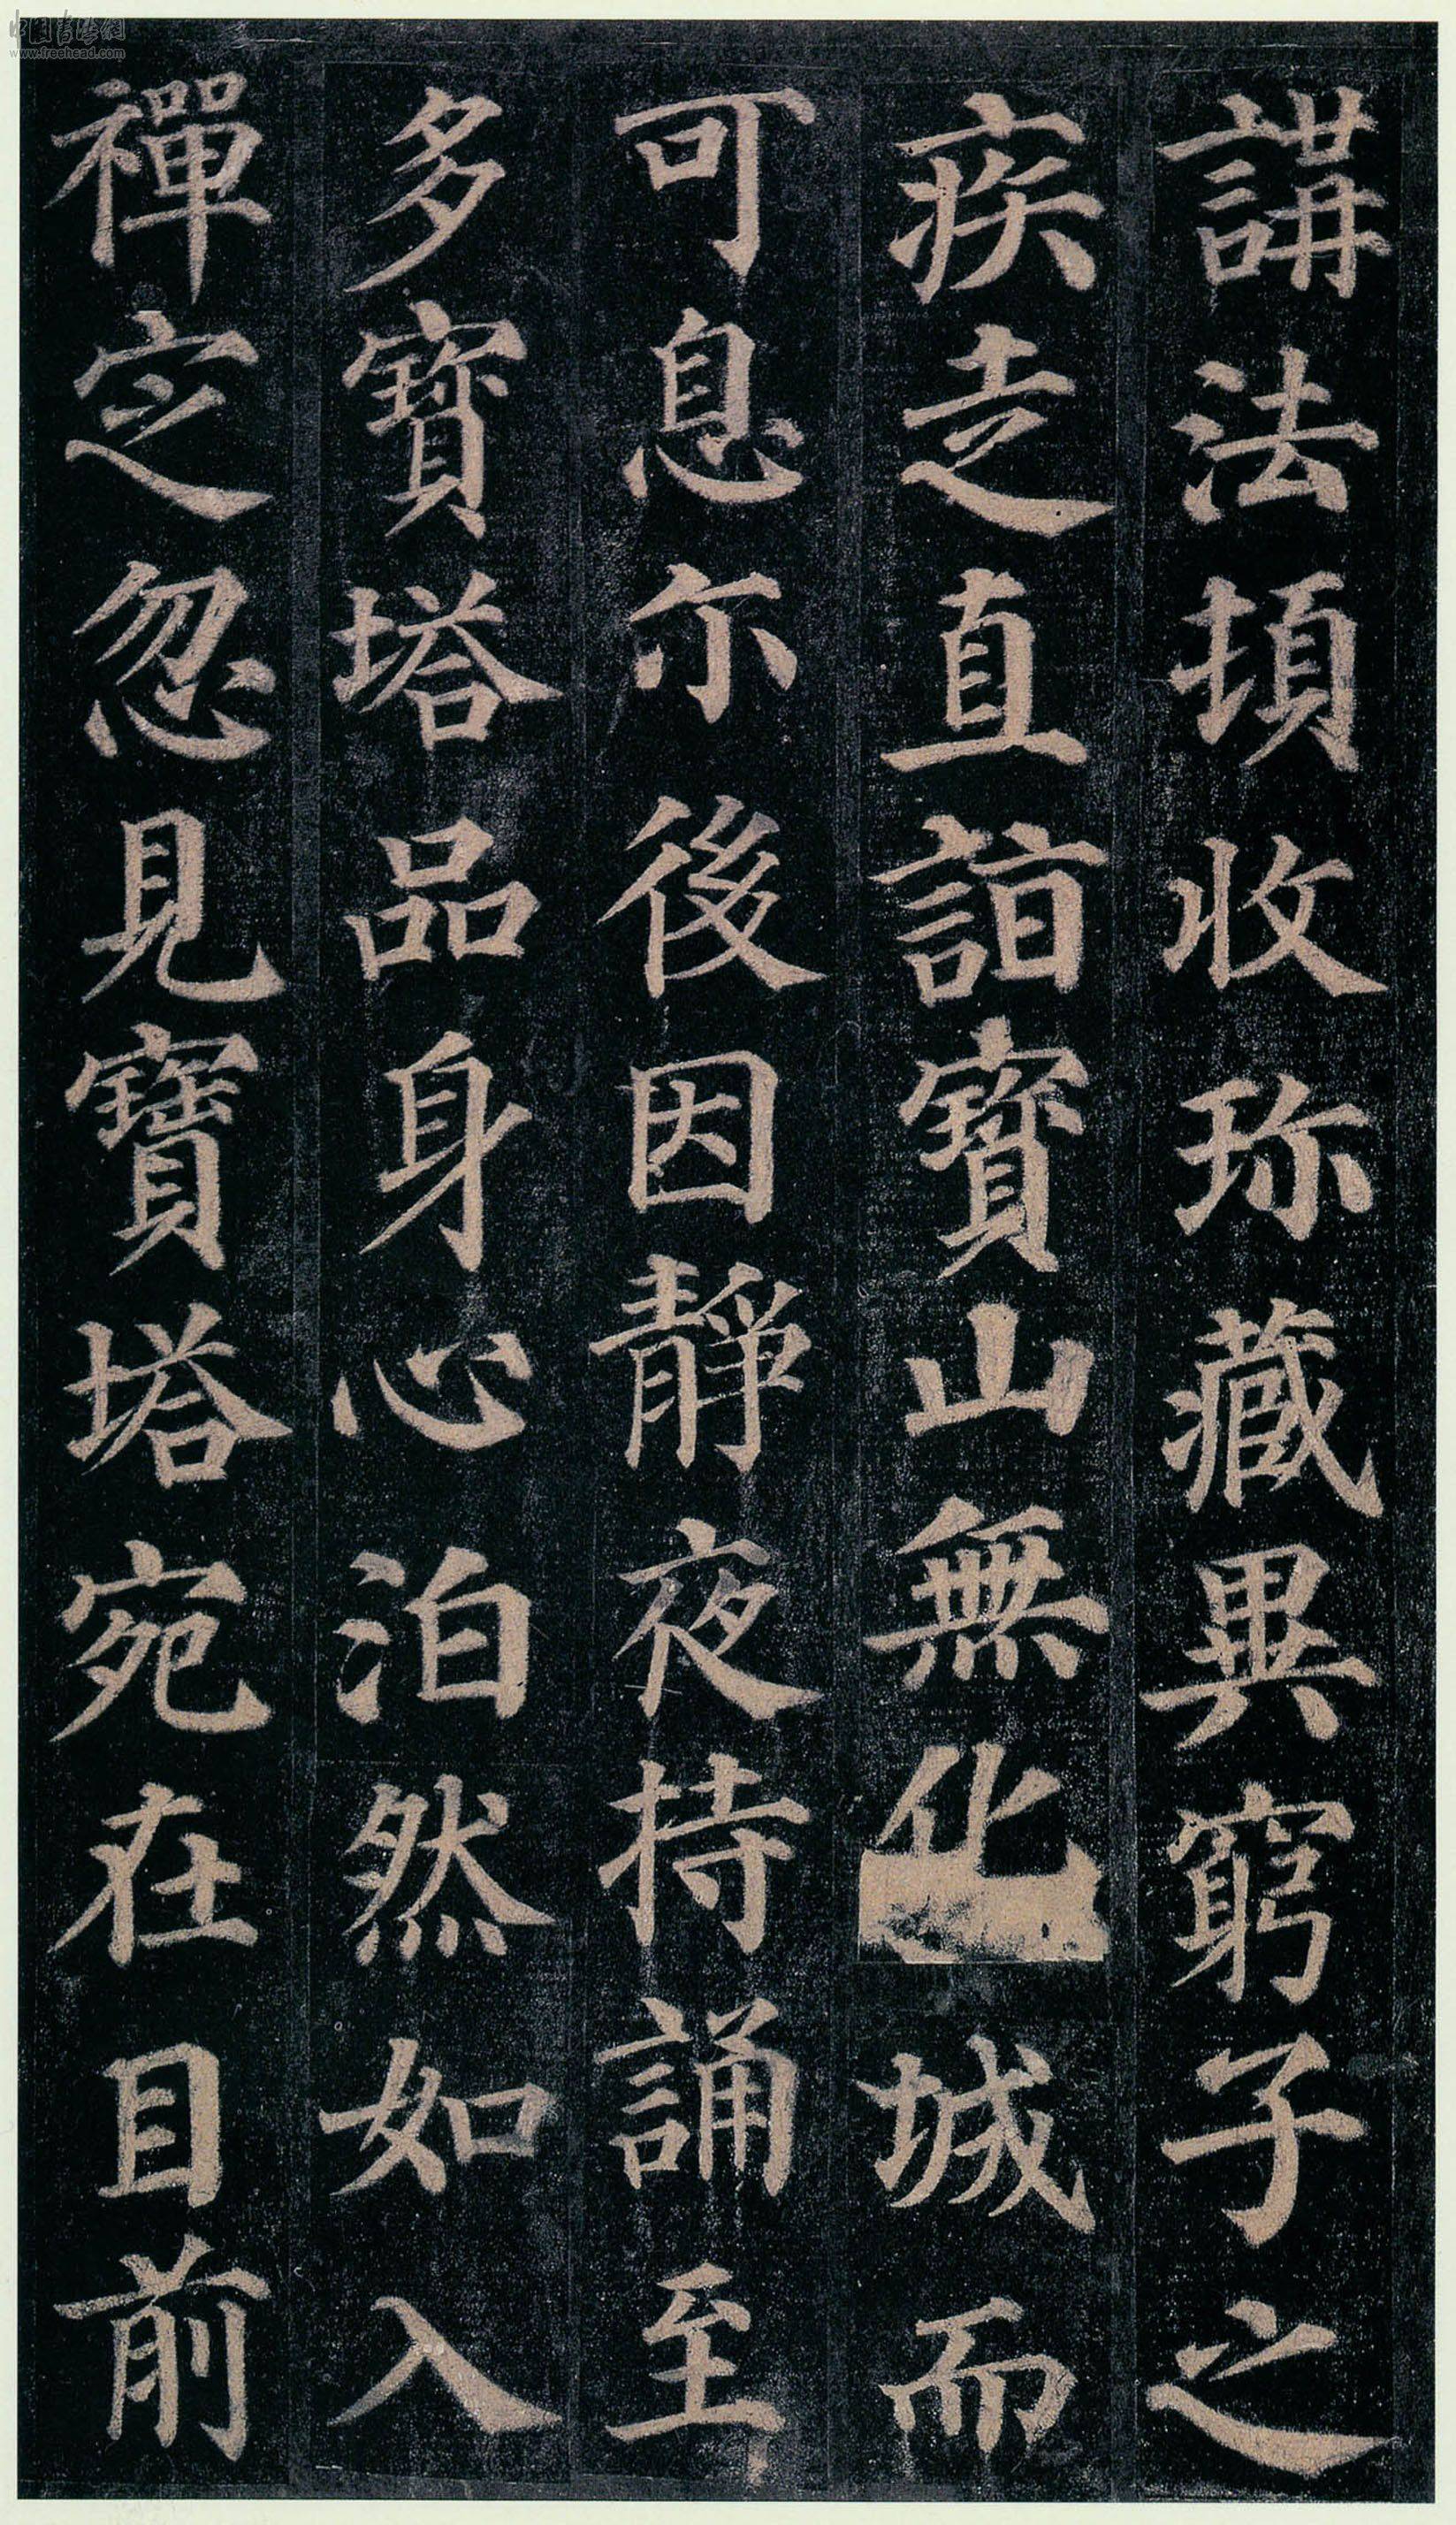 講法頓收珎藏異窮子之
疾走直詣寶山無化城而
可息尒後因靜夜持誦至
多寶塔品身心泊然如入
禪定忽見寶塔宛在目前
中国书法网
www.freehead.com